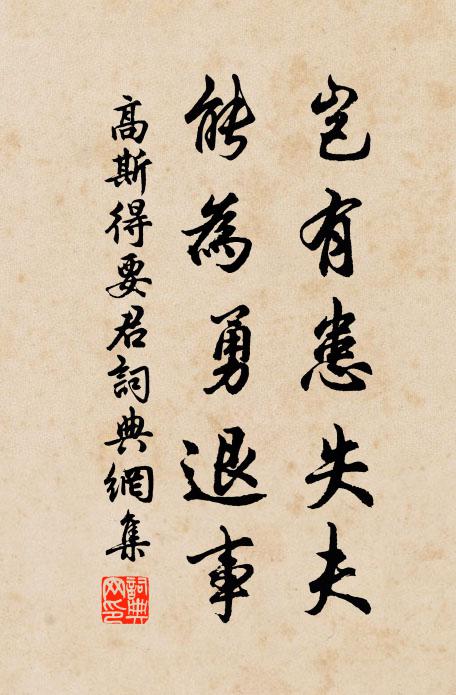 豈有患失夫
能為勇退事
高斯得要君詞典網集
詞典網印